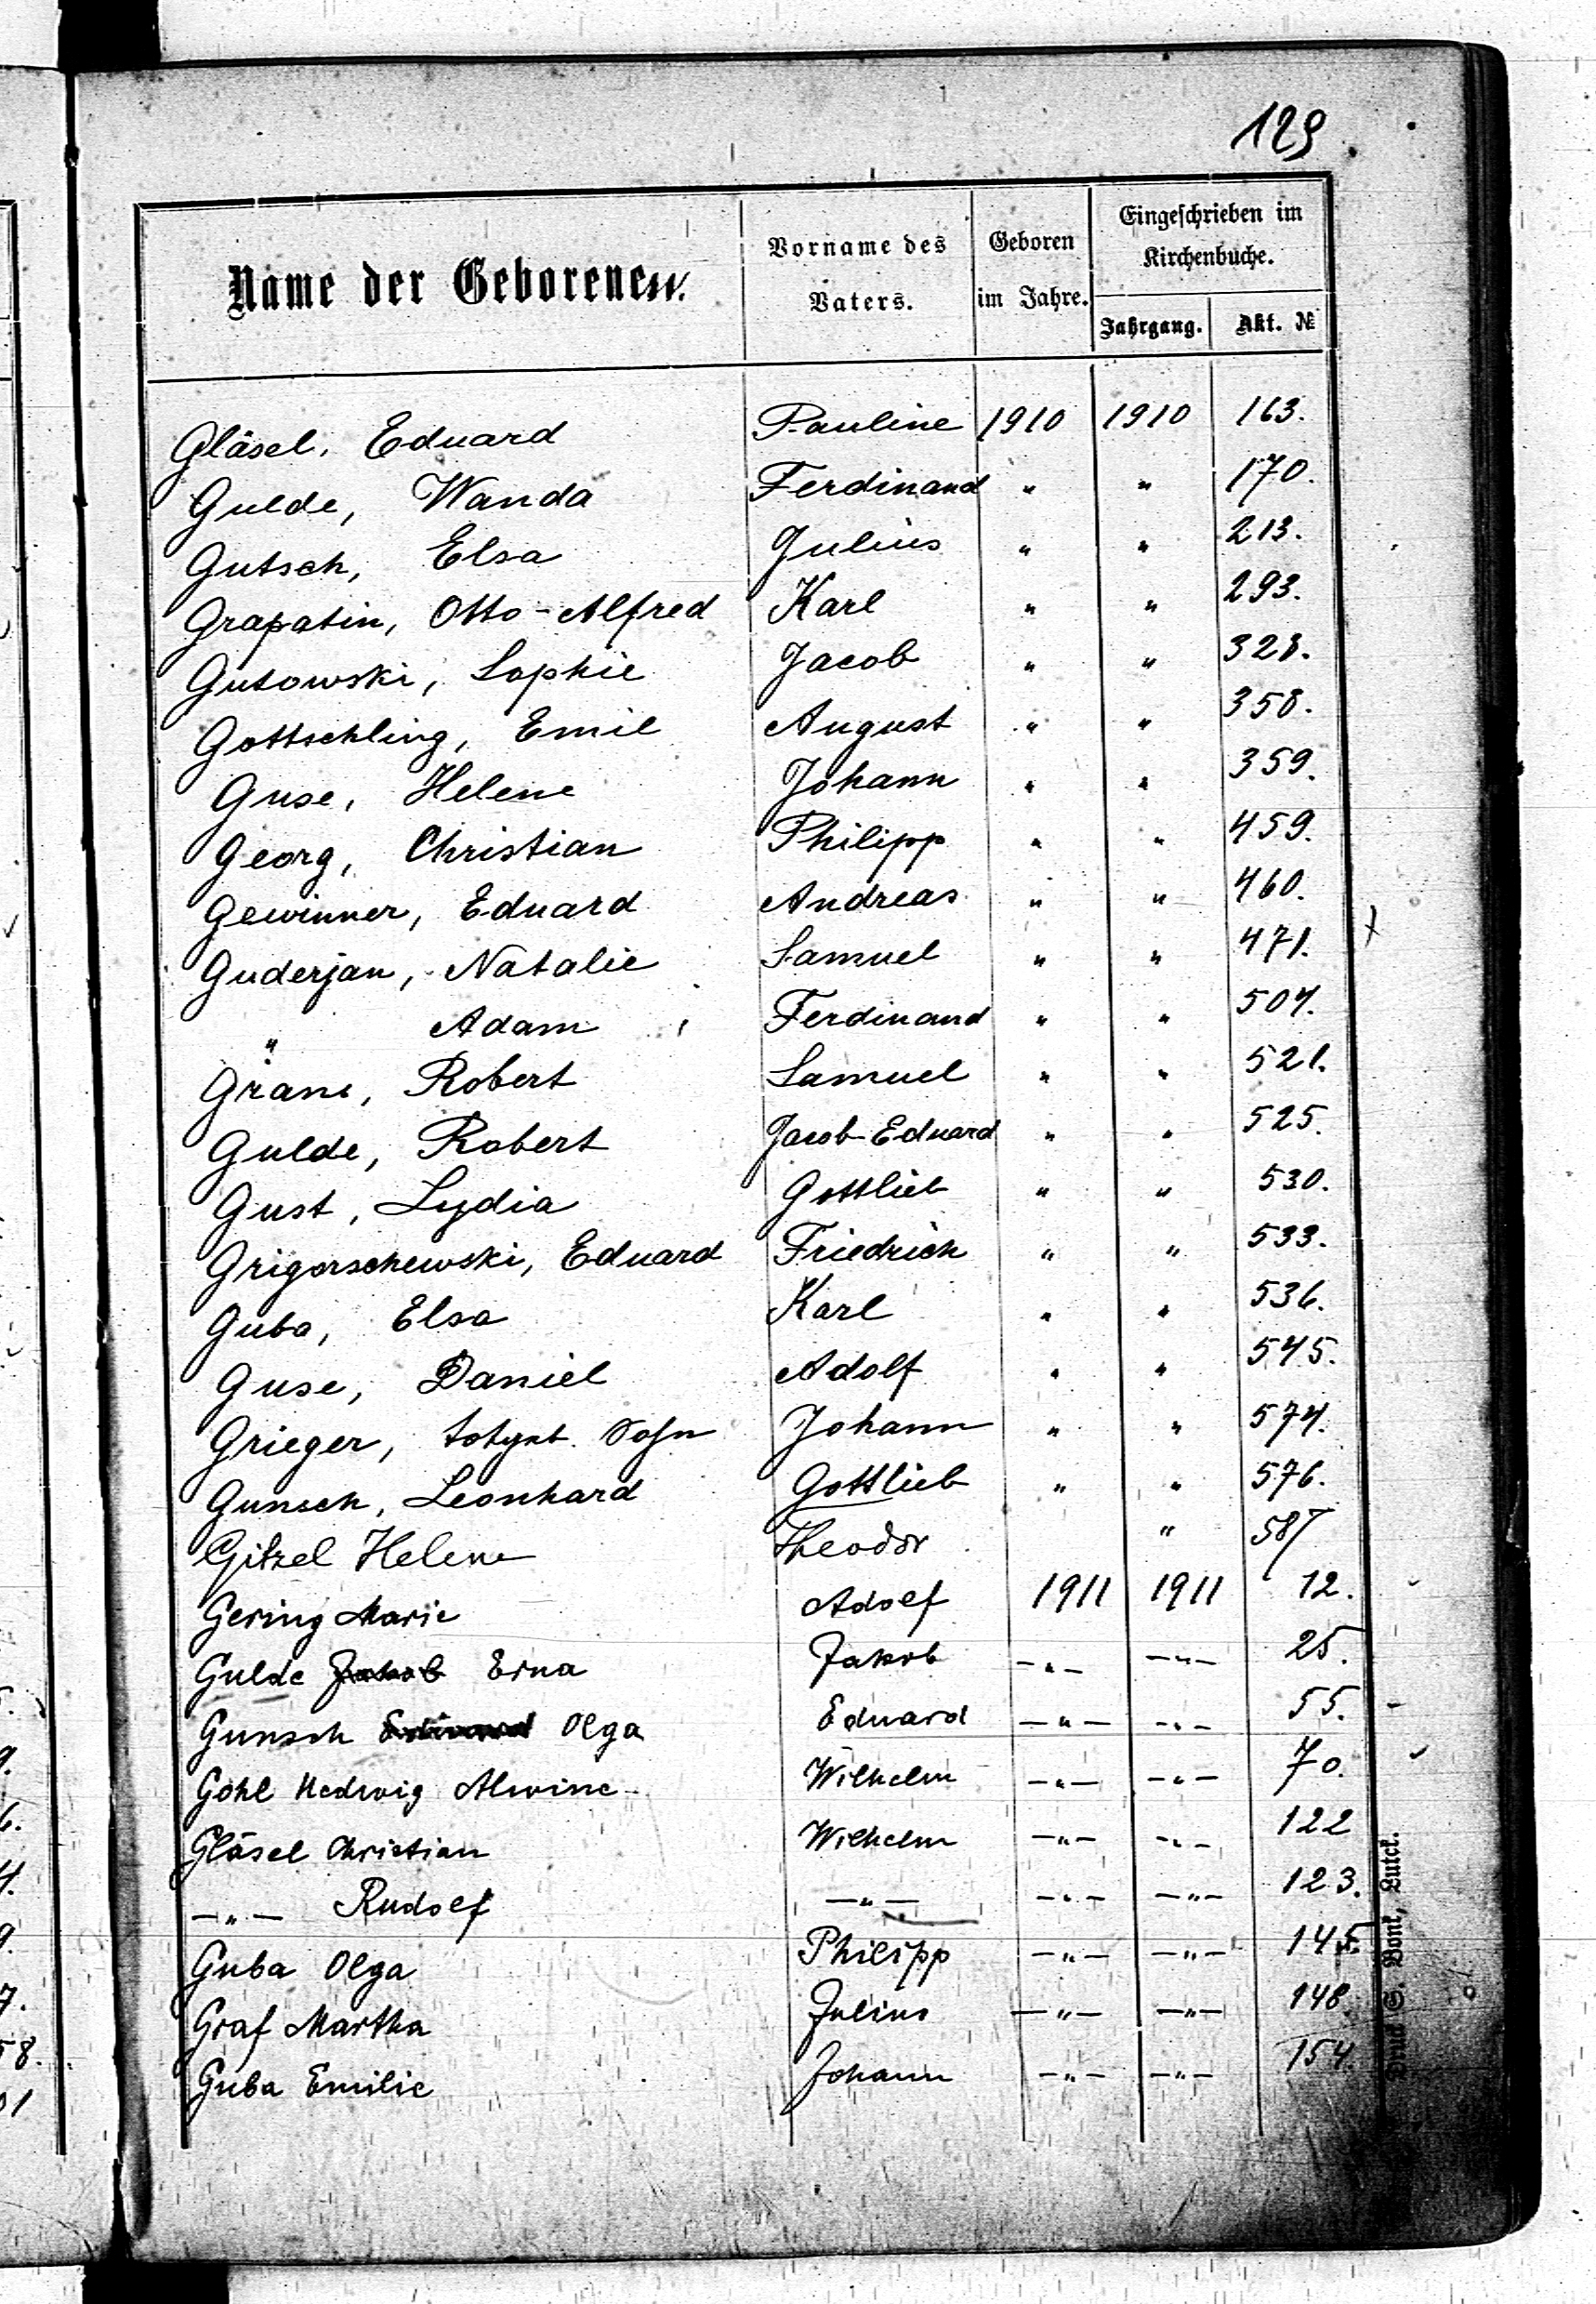 129
Name der Geborenen.
Vorname des Vaters.
Geboren im Jahre.
Eingeschrieben im Kirchenbuche.
Jahrgang. Akt. №
Gläsel, Eduard Pauline 1910 1910 163.
Gulde, Wanda Ferdinand " " 170.
Gutsch, Elsa Julius " " 213.
Grapatin, Otto-Alfred Karl " " 293.
Gutowski, Sophie Jacob " " 328.
Gottschling, Emil August " " 358.
Guse, Helene Johann " " 359.
Georg, Christian Philipp " " 459.
Gewinner, Eduard Andreas " " 460.
Guderjan, Natalie Samuel " " 471.
" Adam Ferdinand " " 504.
Robert Samuel " " 521.
Gulde, Robert Jacob-Eduard " " 525.
Gust, Lydia Gottlieb " " 530.
Grigorschewski, Eduard Friedrich " " 533.
Guba, Elsa Karl " " 536.
Guse, Daniel Adolf " " 545.
Grieger, Sohn Johann " " 574.
Gunsch, Leonhard Gottlieb " " 576.
Gitzel Helene Theodor " 587
Gering Marie Adolf 1911 1911 12.
Gulde Jakob Erna Jakob —"— —"— 25.
Gunsch Eduard Olga Eduard —"— —"— 55.
Gohl Hedwig Alwine Wilhelm —"— —"— 70.
Gläsel Christian Wilhelm —"— —"— 122
—"— Rudolf —"— —"— —"— 123.
Guba Olga Philipp —"— —"— 145.
Graf Martha Julius —"— —"— 148.
Guba Emilie Johann —"— —"— 154.
Druck S. Bonk, Lutck.